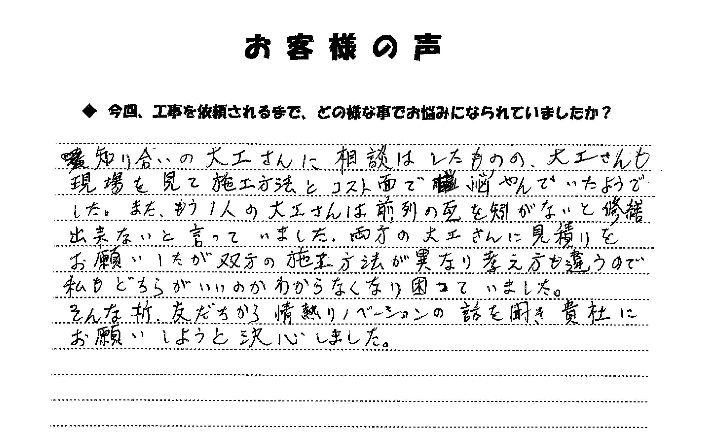 お客様の声
◆ 今回、工事を依頼されるまで、どの様な事でお悩みになられていましたか？
知り合いの大工さんに相談はしたものの、大工さんも
現場を見て施工方法とコスト面で悩やんでいたようで
した。また、もう1人の大工さんは前列の瓦をはがないと修繕
出来ないと言っていました。両方の大工さんに見積りを
お願いしたが双方の施工方法が異なり考え方も違うので
私もどちらがいいのかわからなくなり困っていました。
そんな折、友だちから情熱リノベーションの話を聞き貴社に
お願いしようと決心しました。